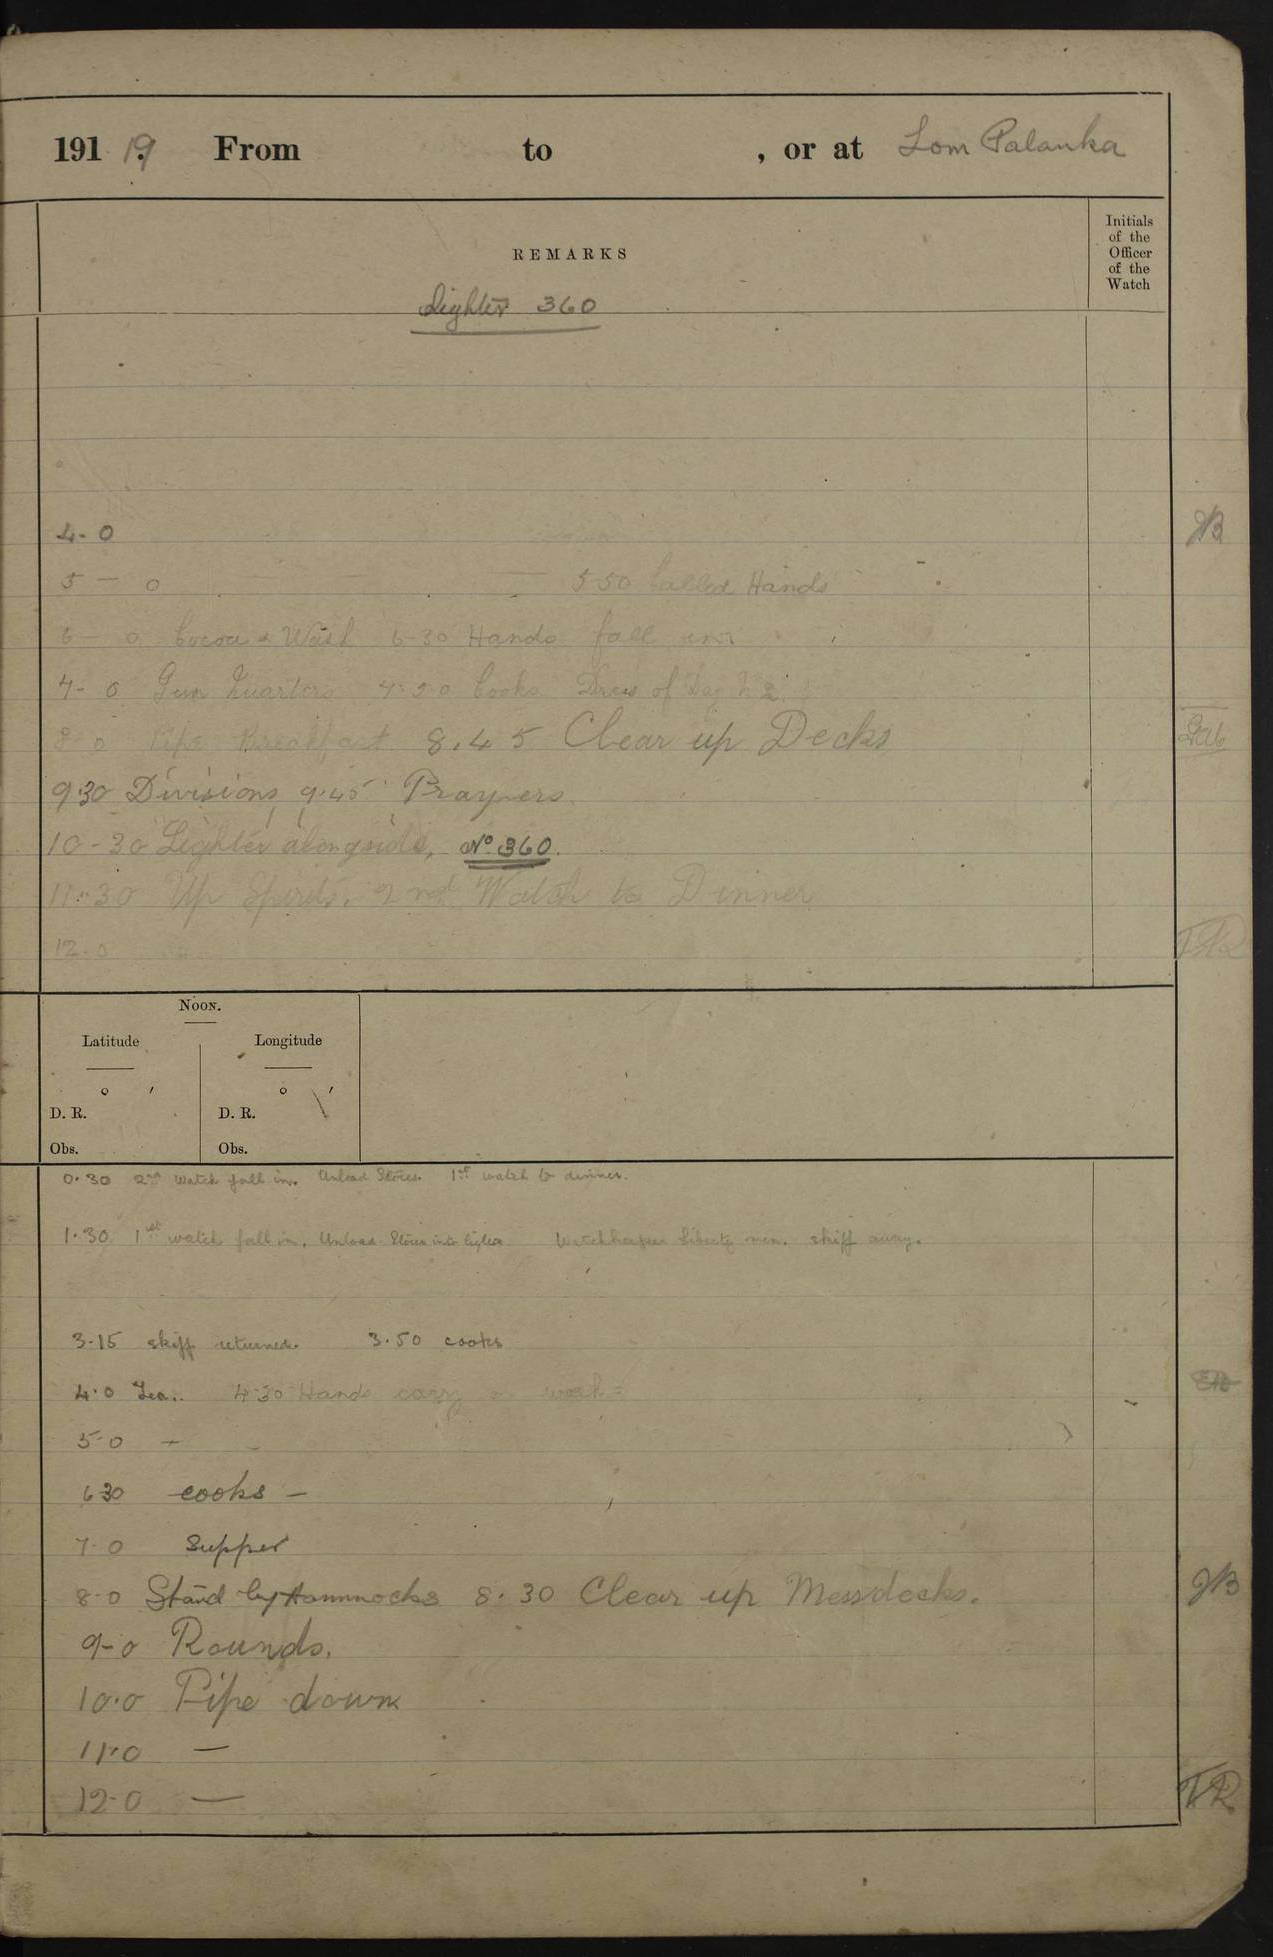 191 19. From to , or at Lom Palanka
REMARKS
Initials of the Officer of the Watch
Lighter 360
4-0 JB
5-0 5 50 Called Hands
6-0 Cocoa & Wash 6-30 Hands fall in
7-0 Gun Quarters 7.50 Cooks Dress of Day N 2
8-0 Pipe Breakfast 8.45 Clear up Decks
9.30 Divisions, 9.45 Prayers
10-30 Lighter alongside, No 360.
11-30 Up Spirits, 2nd Watch to Dinner
12-0
NOON.
Latitude Longitude
° ′ ° ′
D. R. D. R.
Obs. Obs.
0.30 2nd watch fall in. Unload Stores. 1st watch to dinner.
1.30 1st watch fall in. Unload Stores into lighter Watchkeepers Liberty men. skiff away.
3.15 skiff returned. 3.50 cooks
4.0 Tea.. 4.30 Hands carry on work
5-0 -
6 30 cooks —
7-0 Supper
8-0 Stand by Hammocks 8.30 Clear up Messdecks. JB
9-0 Rounds.
10.0 Pipe down
11.0 —
12-0 —